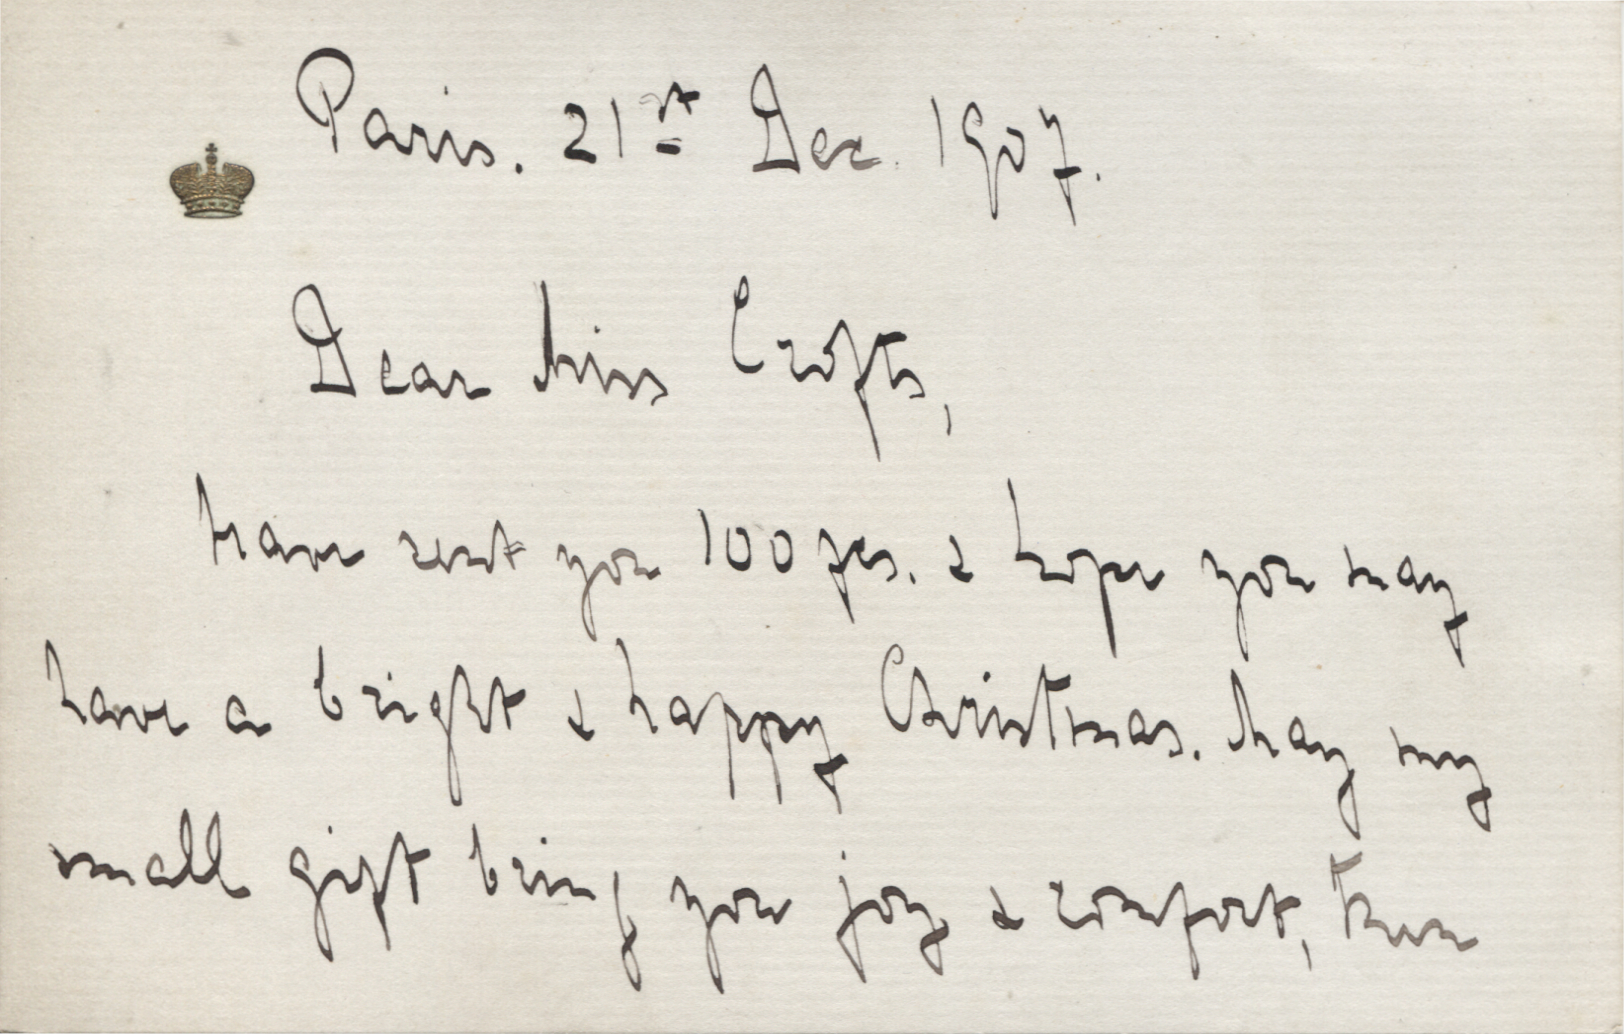 Paris. 21st Dec. 1907.
Dear Miss Crofts,
have sent you 100 frs. & hope you may
have a bright & happy Christmas. May my
small gift bring you joy & comfort, then